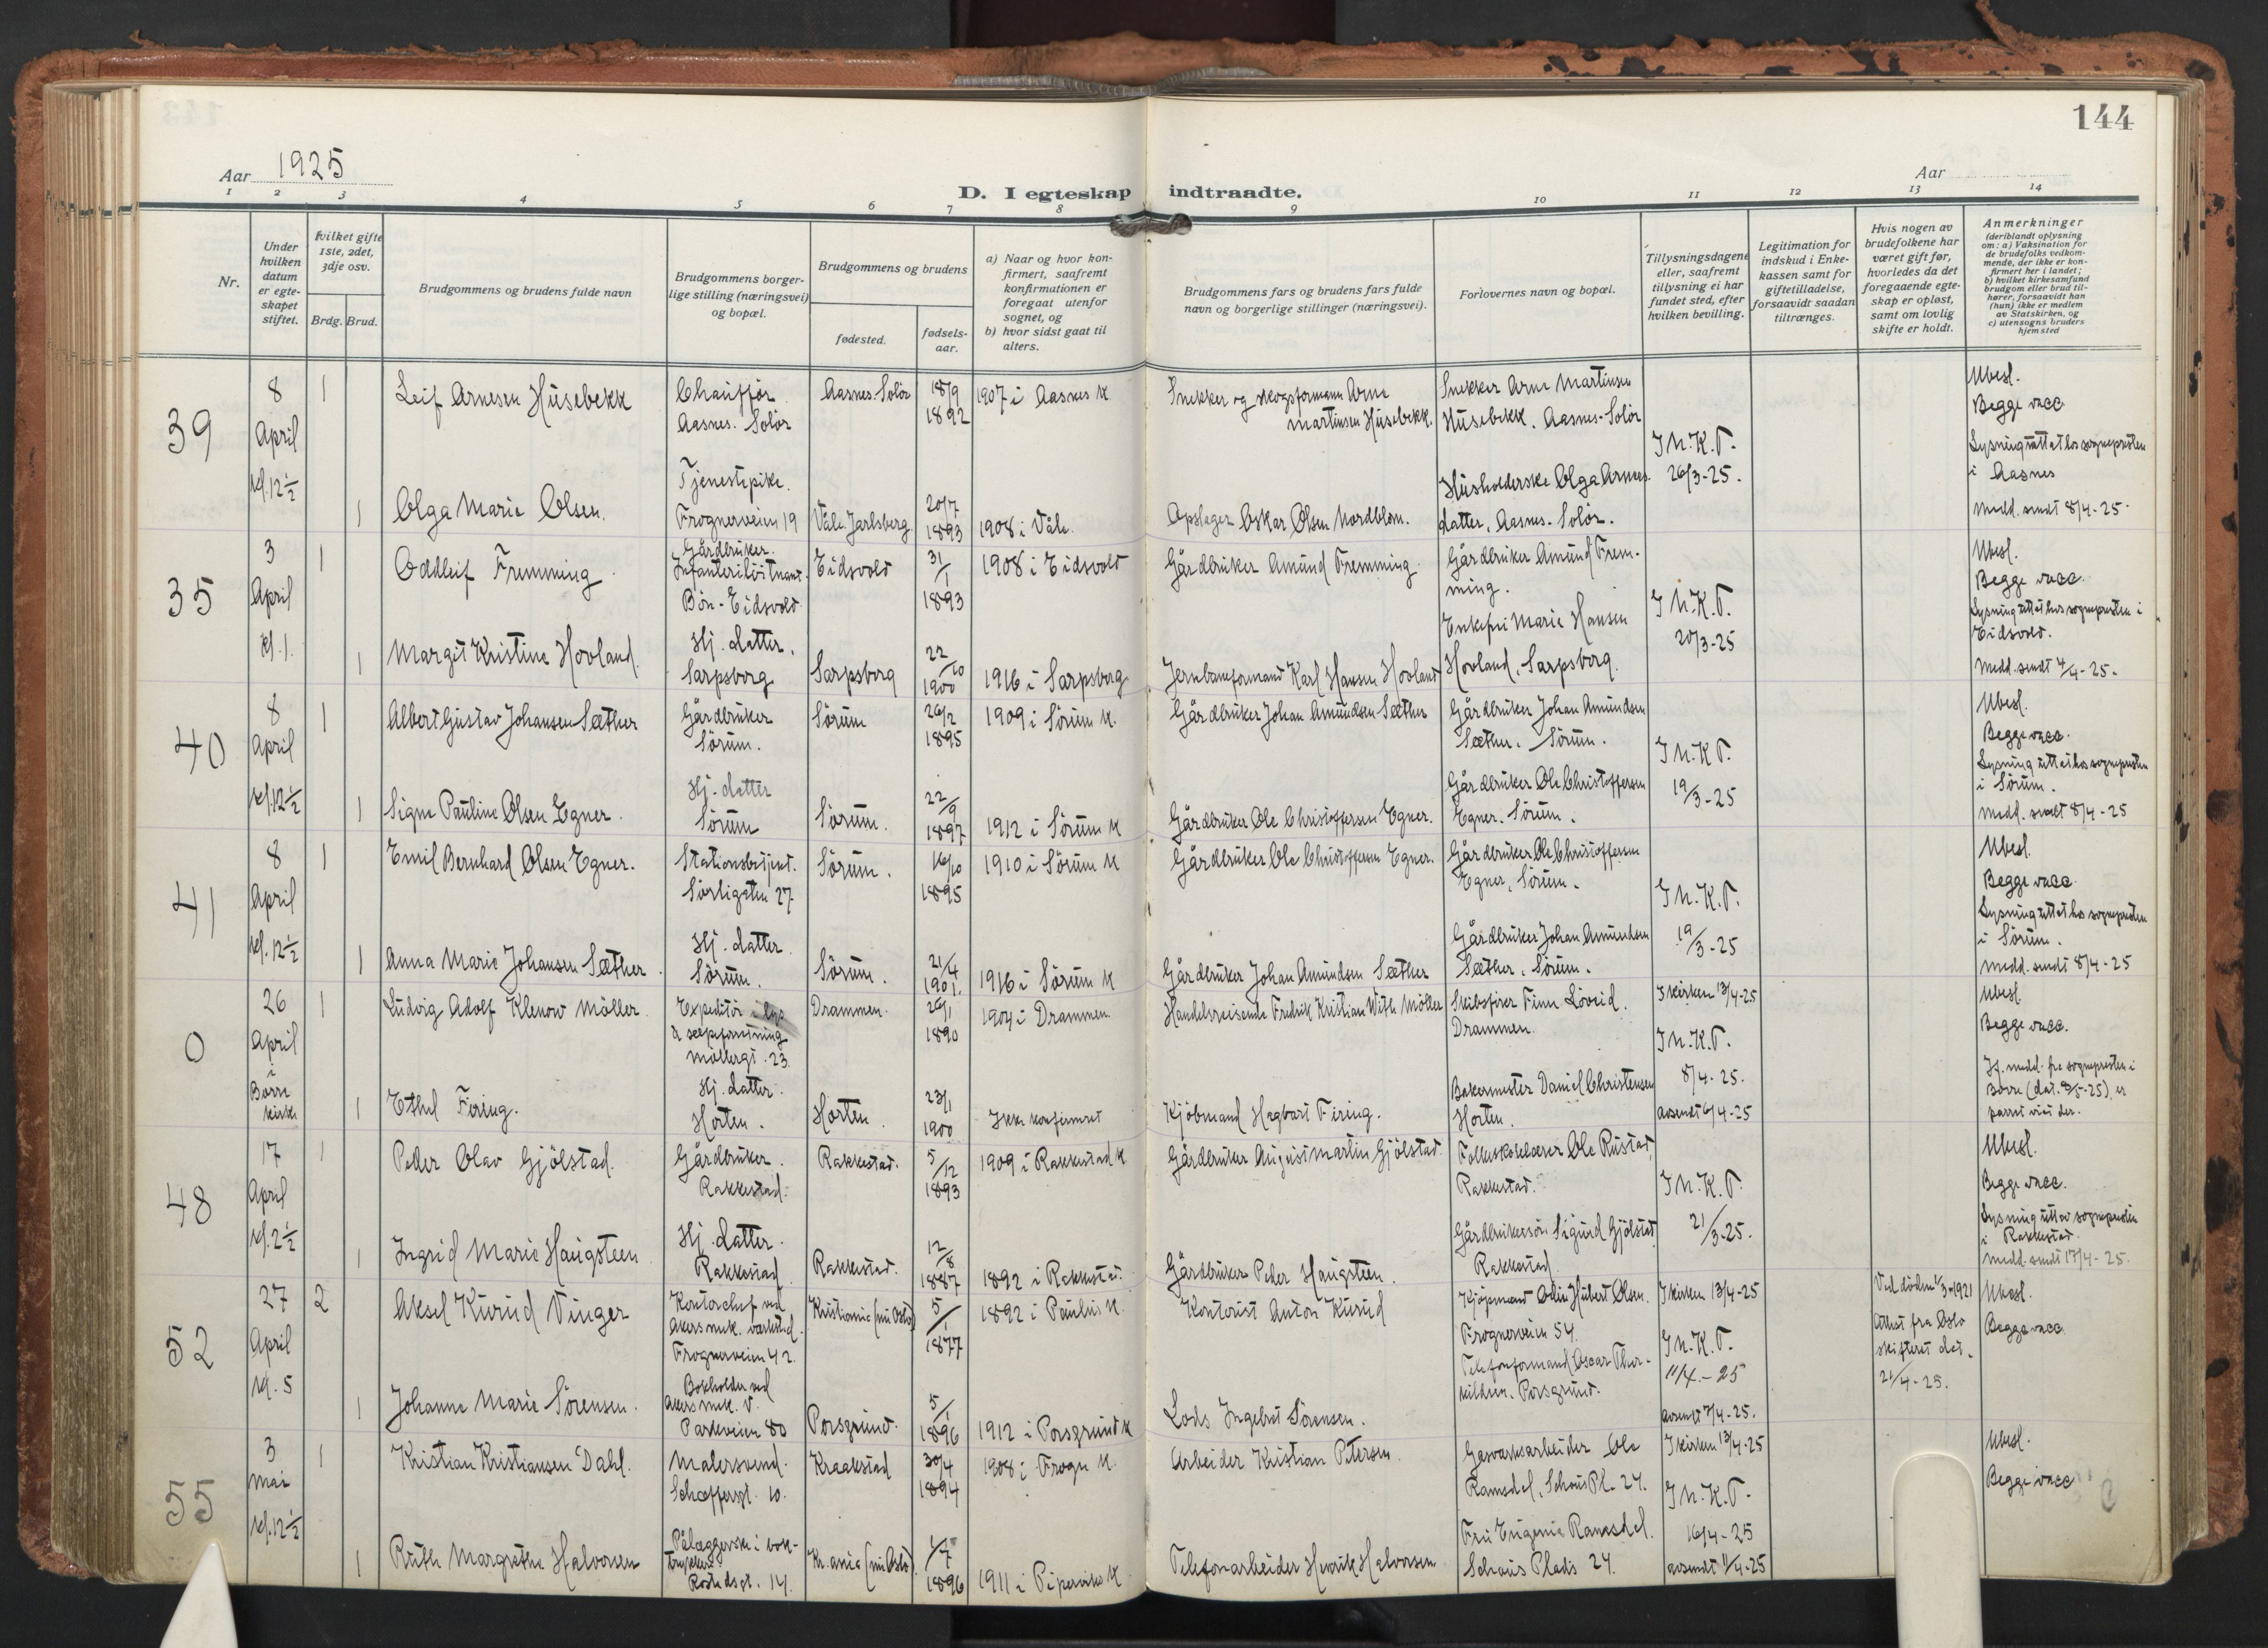 144
Aar 1925
Aar
D. I egteskap indtraadte.
1 2 3 4 5 6 7 8 9 10 11 12 13 14
Nr.
Under hvilken datum er egteskapet stiftet.
hvilket gifte 1ste, 2det, 3dje osv.
Brdg. Brud.
Brudgommens og brudens fulde navn
Brudgommens borgerlige stilling (næringsvei) og bopæl.
Brudgommens og brudens
fødested.
fødsels-aar.
a) Naar og hvor konfirmert, saafremt konfirmationen er foregaat utenfor sognet, og
b) hvor sidst gaat til alters.
Brudgommens fars og brudens fars fulde navn og borgerlige stillinger (næringsvei).
Forlovernes navn og bopæl.
Tillysningsdagene eller, saafremt tillysning ei har fundet sted, efter hvilken bevilling.
Legitimation for indskud i Enkekassen samt for giftetilladelse, forsaavidt saadan tiltrænges.
Hvis nogen av brudefolkene har været gift før, hvorledes da det foregaaende egteskap er opløst, samt om lovlig skifte er holdt.
Anmerkninger (deriblandt oplysning om: a) Vaksination for de brudefolks vedkommende, der ikke er konfirmert her i landet; b) hvilket kirkesamfund brudgom eller brud tilhører, forsaavidt han (hun) ikke er medlem av Statskirken, og c) utensogns bruders hjemsted
39
8 April kl. 12½
1
Leif Arnesen Hüsebekk
Chauffør. Aasnes. Solør
Aasnes. Solør
18/9 1892
1907 i Aasnes K
Snekker og skogsformann Arne Martinsen Hüsebekk.
Snekker Arne Martinsen Hüsebekk. Aasnes-Solør
I N.K.T. 26/3-25.
Ubesl. Begge vacc
Lysning utt. at hos sognepresten i Aasnes
Medd. sendt 8/4-25.
1
Olga Marie Olsen.
Tjenestepike. Frognerveien 19
Våle. Jarlsberg
20/7 1893
1908 i Våle.
Opslager Oskar Olsen Nordblom.
Husholderske Olga Arnesdatter, Aasnes-Solør.
35
3 April kl. 1.
1
Oddleif Fremming
Gårdbruker. Infanteriløitnant. Bön-Eidsvold
Eidsvold
31/1 1893
1908 i Eidsvold
Gårdbruker Amund Fremming
Gårdbruker Amund Fremming.
I N.K.T. 20/3-25
Ubesl. Begge vacc.
Lysning uttat hos sognepresten i Eidsvold.
Medd. sendt 4/4-25.
1
Margit Kristine Hovland.
Hj. datter. Sarpsborg
Sarpsborg
22/10 1900
1916 i Sarpsborg
Jernbaneformand Karl Hansen Hovland
Enkefru Marie Hansen Hovland, Sarpsborg.
40
8 April kl. 12½
1
Albert Gustav Johansen Sæther
Gårdbruker Sörum.
Sörum
26/2 1895
1909 i Sörum K.
Gårdbruker Johan Amundsen Sæther
Gårdbruker Johan Amundsen Sæther. Sörum.
I N.K.T. 19/3-25
Ubesl. Begge vacc.
Lysning uttat hos sognepresten i Sörum.
Medd. sendt 8/4-25
1
Signe Pauline Olsen Egner.
Hj. datter Sörum
Sörum.
22/9 1897
1912 i Sörum K
Gårdbruker Ole Christoffersen Egner.
Gårdbruker Ole Christoffersen Egner. Sörum.
41
8 April kl. 12½
1
Emil Bernhard Olsen Egner.
Stationsbetjent. Sörligaten 27
Sörum.
16/10 1895
1910 i Sörum K
Gårdbruker Ole Christoffersen Egner.
Gårdbruker Ole Christoffersen Egner, Sörum.
I N.K.T. 19/3-25
Ubesl. Begge vacc.
Lysning uttat hos sognepresten i Sörum.
Medd. sendt 8/4-25
1
Anna Marie Johansen Sæther.
Hj. datter. Sörum.
Sörum.
21/4 1901.
1916 i Sörum K
Gårdbruker Johan Amundsen Sæther
Gårdbruker Johan Amundsen Sæther, Sörum.
0
26 April i Borre kirke
1
Ludvig Adolf Klenow Möller
Expeditör i lys & sæpeforretning Möllergt. 23
Drammen.
26/1 1890
1904 i Drammen
Handelsreisende Fredrik Kristian With Möller
Skibsfører Finn Löveid. Drammen.
I kirken 13/4-25
I N.K.T. 8/4-25.
avsendt 6/4-25
Ubesl. Begge vacc.
Jf. medd. fra sognepresten i Borre (dat. 2/5-25), er parret viet der.
1
Ethel Firing.
Hj. datter. Horten.
Horten.
23/1 1900
Ikke konfirmert
Kjöbmand Hagbart Firing.
Bakermester Daniel Christensen Horten.
48
17 April kl. 2½
1
Peder Olav Gjölstad.
Gårdbruker. Rakkestad.
Rakkestad.
5/12 1893
1909 i Rakkestad K
Gårdbruker August Martin Gjölstad
Folkeskolelærer Ole Rustad, Rakkestad.
I N.K.T. 21/3-25.
Ubesl. Begge vacc.
Lysning utt av sognepresten i Rakkestad.
Medd. sendt 17/4-25.
1
Ingrid Marie Haugsteen
Hj. datter. Rakkestad
Rakkestad.
12/8 1887
1892 i Rakkestad.
Gårdbruker Peder Haugsteen.
Gårdbrukersön Sigurd Gjölstad, Rakkestad
52
27 April kl. 5
2
Aksel Kurud Vinger
Kontorchef ved Akers mek. værksted. Frognerveien 42.
Kristiania (nu Oslo)
5/1 1877
1892 i Paulus K.
Kontorist Anton Kurud
Kjøpmand Odin Hubert Olsen. Frognerveien 54.
I kirken 13/4-25
I N.K.T. 11/4.-25
avsendt 7/4-25.
Ved döden 1/3-1921
Attest fra Oslo skifteret dat. 21/4-25.
Ubesl. Begge vacc
1
Johanne Marie Sörensen.
Bokholder ved Akers mek. V. Parkveien 80
Porsgrund.
5/1 1896
1912 i Porsgrund K
Lods Ingebret Sörensen.
Telefonformand Oscar Thorkildsen. Porsgrund.
55
3 Mai kl. 12½
1
Kristian Kristiansen Dahl.
Malersvend. Schæffersgt. 10.
Kraakstad
30/4 1894
1908 i Frogn K.
Arbeider Kristian Petersen.
Gasverksarbeider Ole Ramsdal, Schous Pl. 24.
I kirken 13/4-25
I N.K.T. 16/4-25
avsendt 11/4-25
Ubesl. Begge vacc
1
Ruth Margrethe Halvorsen
Pålæggerske i boktrykkeri Rostedsgt. 14.
Kr.ania (nu Oslo)
1/7 1896
1911 i Piperviks K
Telefonarbeider Henrik Halvorsen
Fru Eugenie Ramsdal. Schous Plads 24.